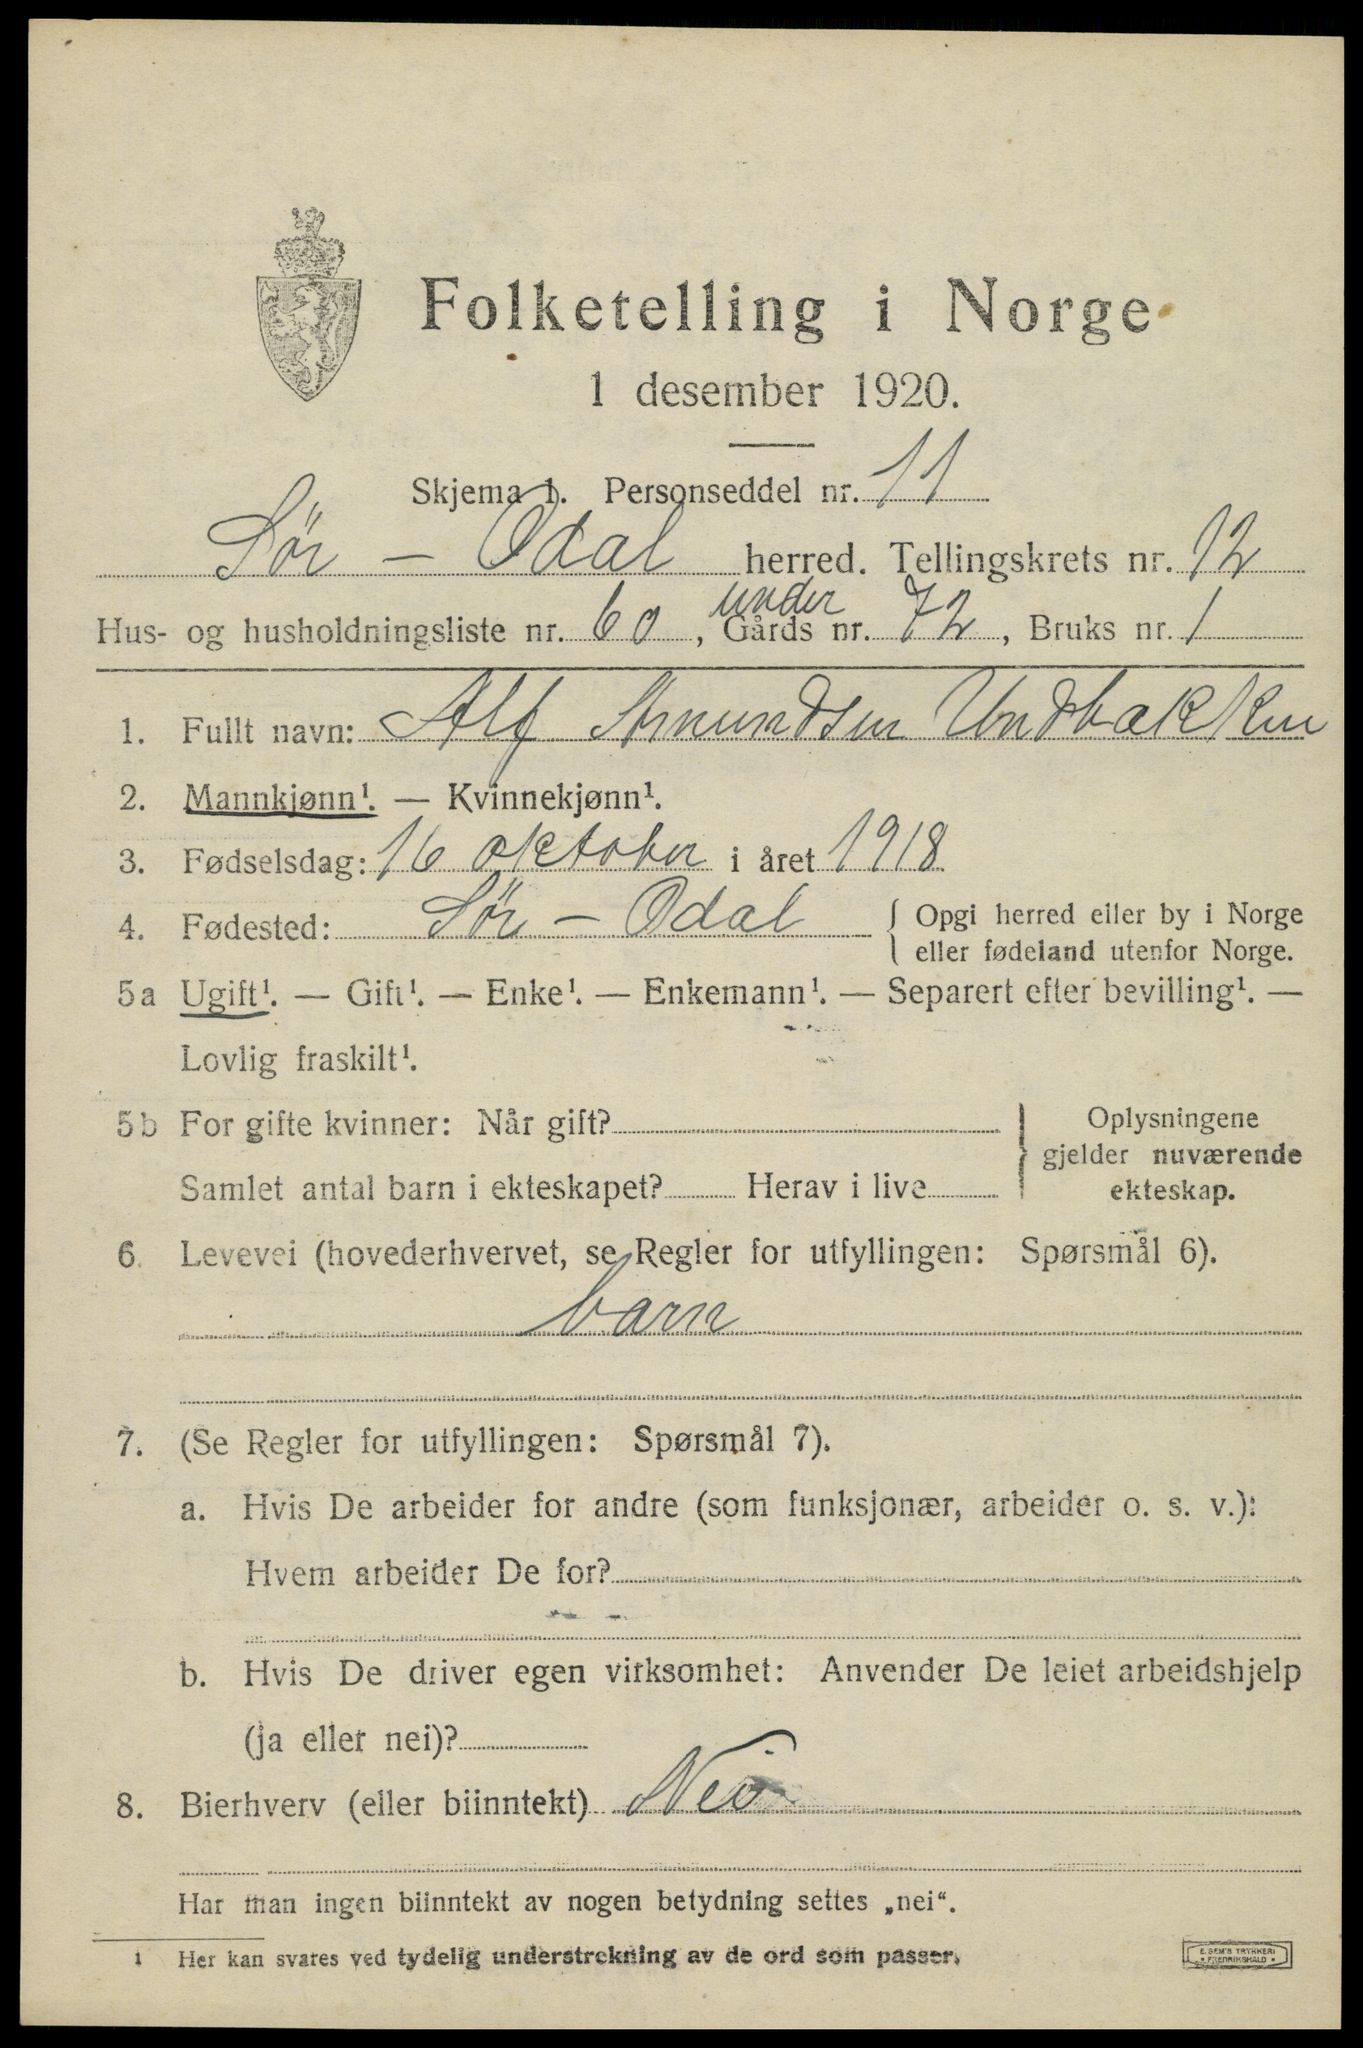 Folketelling i Norge
1 desember 1920.
Skjema 1. Personseddel nr. 11
Sør - Odal herred. Tellingskrets nr. 12
under
Hus- og husholdningsliste nr. 60, Gårds nr. 72, Bruks nr. 1
1. Fullt navn: Alf Amundsen Undbakken
2. Mannkjønn¹. — Kvinnekjønn¹.
3. Fødselsdag: 16 oktober i året 1918
4. Fødested: Sør - Odal { Opgi herred eller by i Norge
eller fødeland utenfor Norge.
5a Ugift¹. — Gift¹. — Enke¹. — Enkemann¹. — Separert efter bevilling¹. —
Lovlig fraskilt¹.
5b For gifte kvinner: Når gift?
Samlet antal barn i ekteskapet? Herav i live
} Oplysningene
gjelder nuværende
ekteskap.
6. Levevei (hovederhvervet, se Regler for utfyllingen: Spørsmål 6).
barn
7. (Se Regler for utfyllingen: Spørsmål 7).
a. Hvis De arbeider for andre (som funksjonær, arbeider o. s. v.):
Hvem arbeider De for?
b. Hvis De driver egen virksomhet: Anvender De leiet arbeidshjelp
(ja eller nei)?
8. Bierhverv (eller biinntekt) Nei
Har man ingen biinntekt av nogen betydning settes „nei“.
1 Her kan svares ved tydelig understrekning av de ord som passer.
E. SEM'S TRYKKERI
FREDRIKSHALD